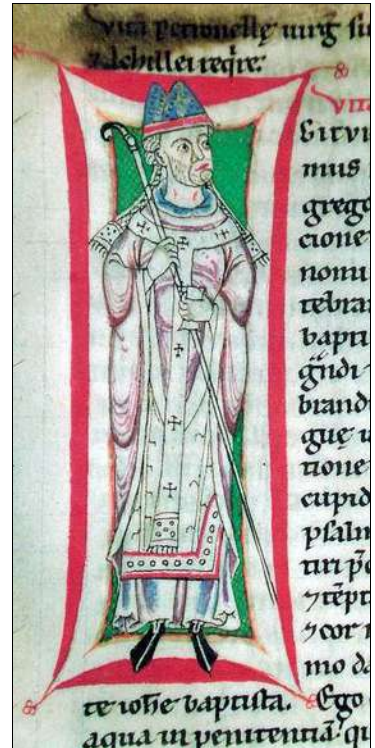 Vita Petronellę uirg̃ si
⁊ Achillei req̃re:
Vita
mus
grego
cione
nomi
tebra
bapti
g̃ndi
brand
guę
tione
cupid
psalm
tiri
⁊ tẽpt
⁊ cor
mo da
te ioħe baptista. Ego
aqua in penitentiã. qui